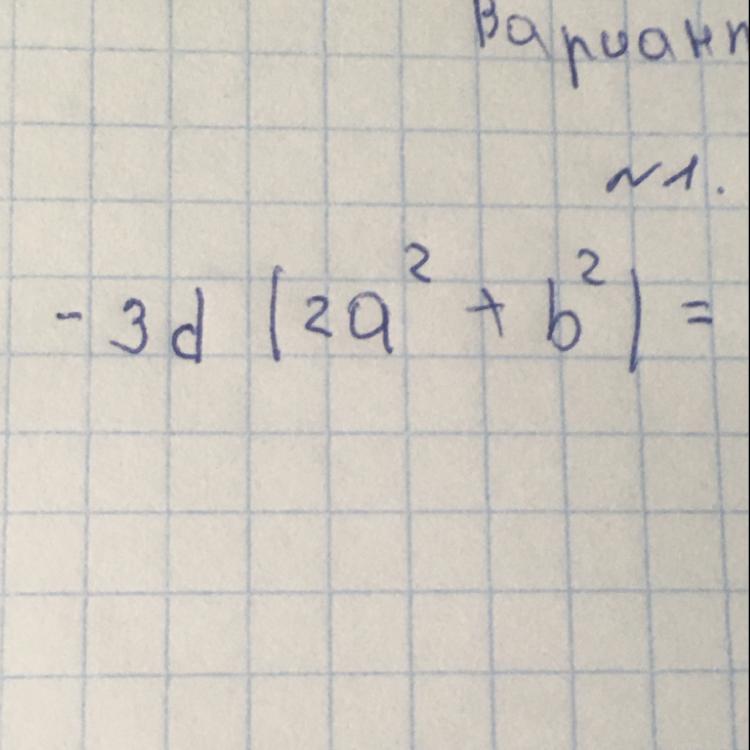 Вариан
№1.
-3d (2a² + b²) =